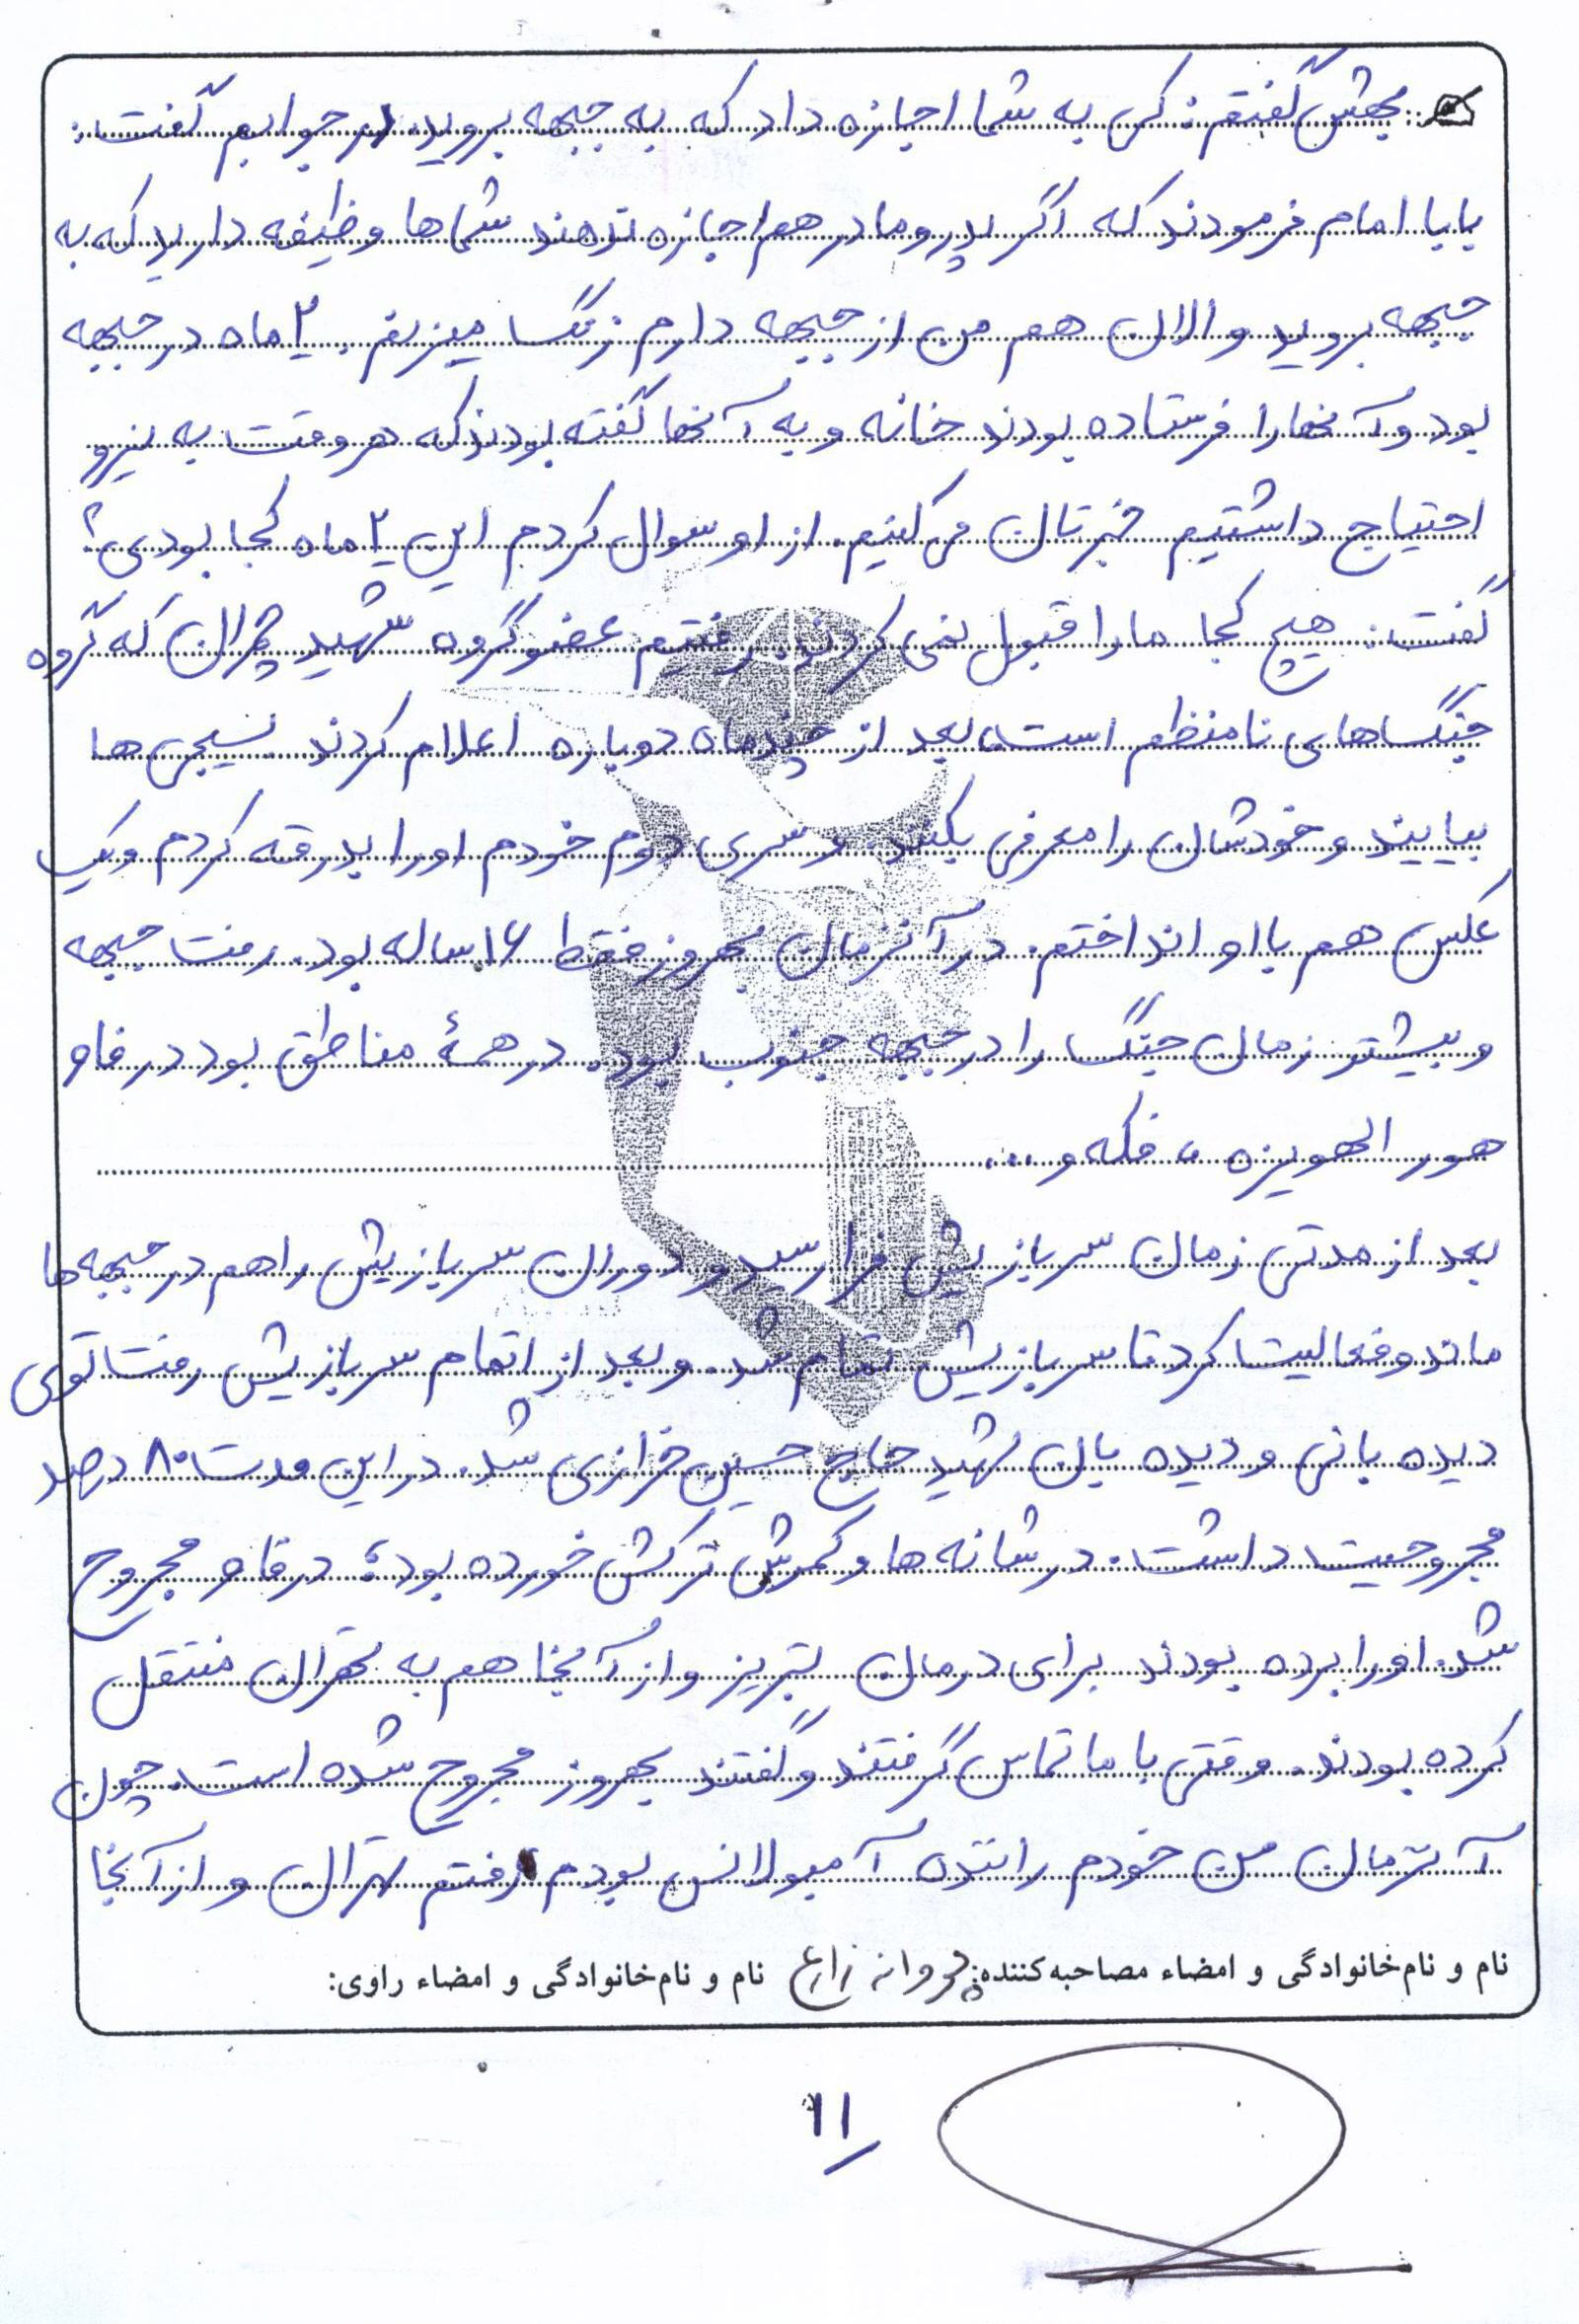 بهش گفتم: کی به شما اجازه داد که به جبهه بروید. در جوابم گفت:
بابا امام فرمودند که اگر پدر و مادر هم اجازه ندهند شماها وظیفه دارید که به
جبهه بروید و الان هم من از جبهه دارم زنگ میزنم. ۲ ماه در جبهه
بود و آنها را فرستاده بودند خانه و به آنها گفته بودند که هر وقت به نیرو
احتیاج داشتیم خبرتان می کنیم. از او سوال کردم این ۲ ماه کجا بودی؟
گفت: هیچ کجا ما را قبول نمی کردند. رفتیم عضو گروه شهید چمران که گروه
جنگ های نامنظم است، بعد از چند ماه دوباره اعلام کردند بسیجی ها
بیایند و خودشان را معرفی بکنند. و سری دوم خودم او را بدرقه کردم و یک
عکس هم با او انداختم. در آنزمان بهروز فقط ۱۶ ساله بود. رفت جبهه
و بیشتر زمان جنگ را در جبهه جنوب بود. در همهٔ مناطق بود در فاو
هور الهویزه ، فکه و ...
بعد از مدتی زمان سربازیش فرا رسید و دوران سربازیش را هم در جبهه ها
ماند و فعالیت کرد تا سربازیش تمام شد. و بعد از اتمام سربازیش رفت توی
دیده بانی و دیده بان شهید حاج حسین خرازی شد. در این مدت ۸۰ درصد
مجروحیت داشت. در شانه ها و کمرش ترکش خورده بود؛ در فاو مجروح
شد. او را برده بودند برای درمان تبریز و از آنجا هم به تهران منتقل
کرده بودند. وقتی با ما تماس گرفتند و گفتند بهروز مجروح شده است. چون
آنزمان من خودم راننده آمبولانس بودم رفتم تهران و از آنجا
نام و نام خانوادگی و امضاء مصاحبه کننده: پروانه زارع نام و نام خانوادگی و امضاء راوی:
۱۱